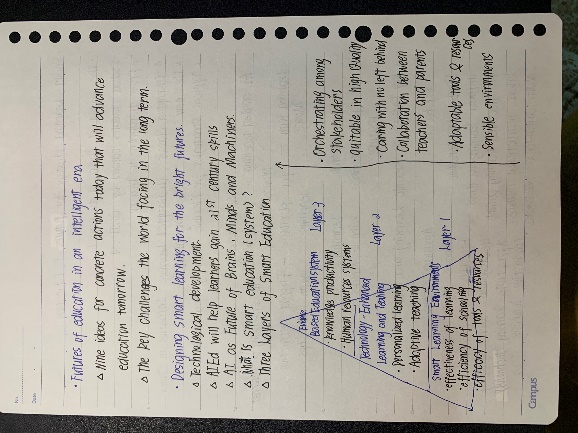 No.
Date
· Futures of education in an intelligent era.
△ Nine ideas for concrete actions today that will advance
education tomorrow.
△ The key challenges the world facing in the long term.
· Designing smart learning for the bright futures.
△ Technological development.
△ AIEd will help learners gain 21st century skills
△ AI as Future of Brains, Minds and Machines.
△ What is smart education (system)?
△ Three Layers of Smart Education
Education system Layer 3
knowledge productivity
· Human resources systems
Technology-Enhanced Layer 2
Learning and
· Personalized learning
· Adaptive teaching
Smart Learning Environments Layer 1
· effectiveness of learning
· efficiency of
· efficacy of tools & resources
· Orchestrating among
stakeholders
quitable in high quality
· Caring with no left behind
· Collaboration between
teachers and parents
· Adoptable tools & resour
ces
· Sensible environments
Campus